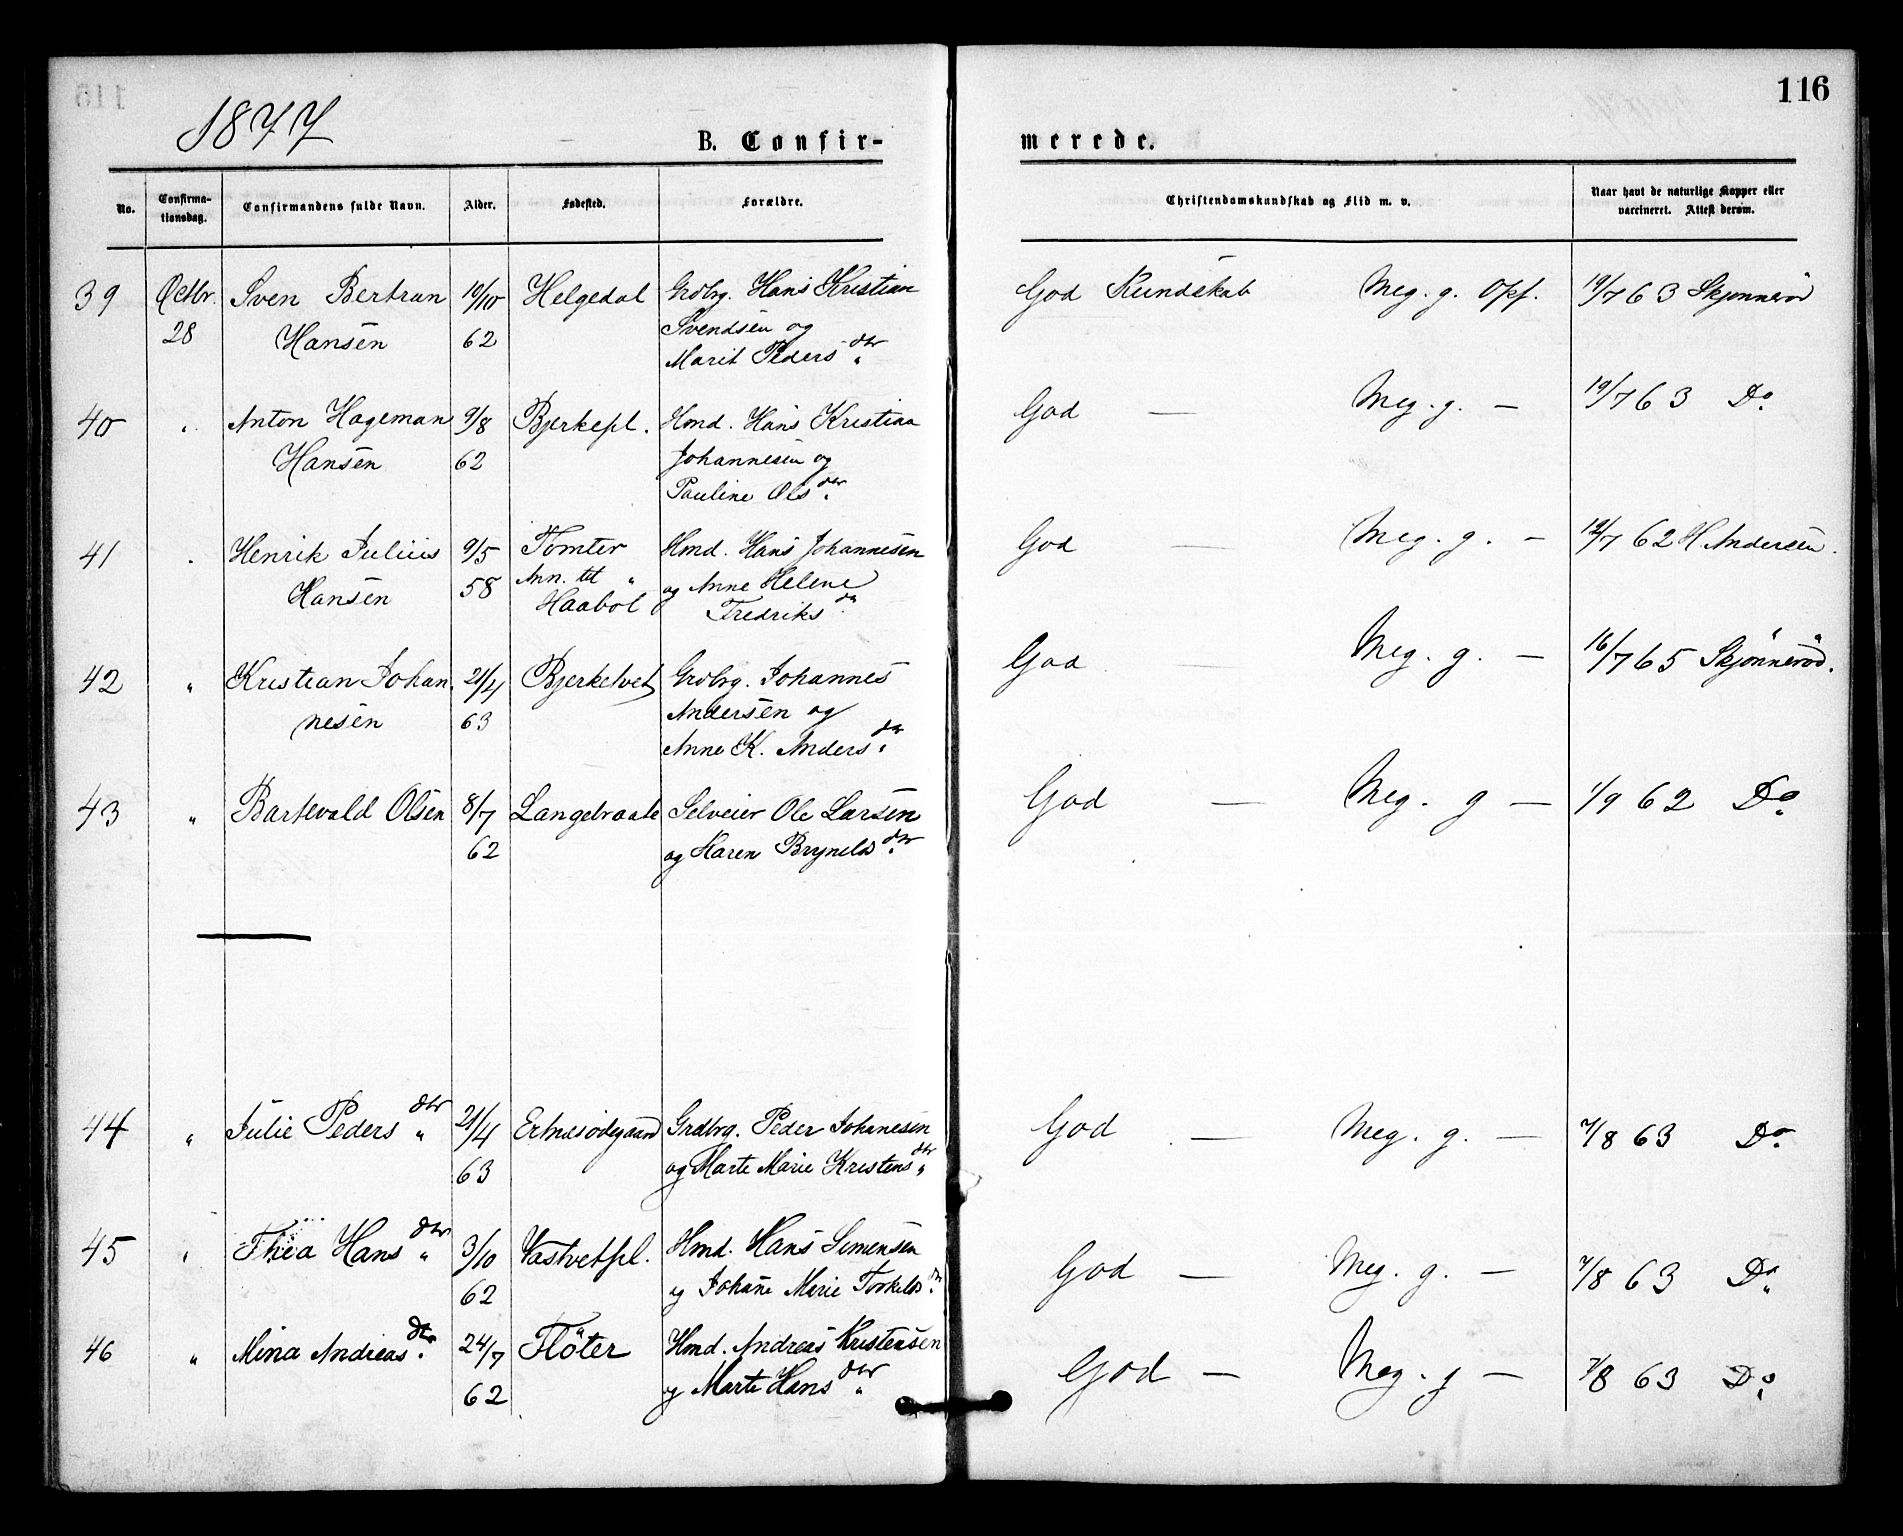 116
1877
B. Confir-
merede.
No.
Confirma-
tionsdag.
Confirmandens fulde Navn.
Alder.
Fødested.
Forældre.
Christendomskundskab og Flid m. v.
Naar havt de naturlige Kopper eller
vaccineret. Attest derom.
39 Octbr. Sven Bertran 19/10 Helgedal Grdbrg. Hans Kristian God Kundskab Meg. g. Opf. 19/7 63 Skjønnerød
28 Hansen 62 Svendsen og
Marit Peders dtr
40 " Anton Hageman 9/8 Bjerkepl. Hmd. Hans Kristian God — Meg. g. — 19/7 63 Do
Hansen 62 Johannesen og
Pauline Ols dtr
41 " Henrik Julius 9/5 Tomter Hmd. Hans Johannesen God — Meg. g. — 19/7 62 H Andersen.
Hansen 58 Ann. til " og Anne Helene
Haabøl Fredriks dr
42 " Kristian Johan 21/4 Bjerketvet Grdbrg. Johannes God — Meg. g. — 16/7 65 Skjønnerød.
nesen 63 Andersen og
Anne K. Anders dr
43 " Bartevald Olsen 8/7 Langebraate Selveier Ole Larsen God — Meg. g — 1/9 62 Do
62 og Karen Brynelds dtr
44 " Julie Peders dtr 21/4 Grdbrg. Peder Johanesen God — Meg. g. — 7/8 63 Do
63 og Marte Marie Kristens dtr
45 " Thea Hans dtr 3/10 Vastvetpl. Hmd. Hans Simensen God — Meg. g. — 7/8 63 Do
62 og Johane Marie Torkelds dtr
46 " Mina Andreas dtr 24/7 Fløter Hmd. Andreas Kristensen God — Meg. g — 7/8 63 Do
62 og Marte Hans dtr